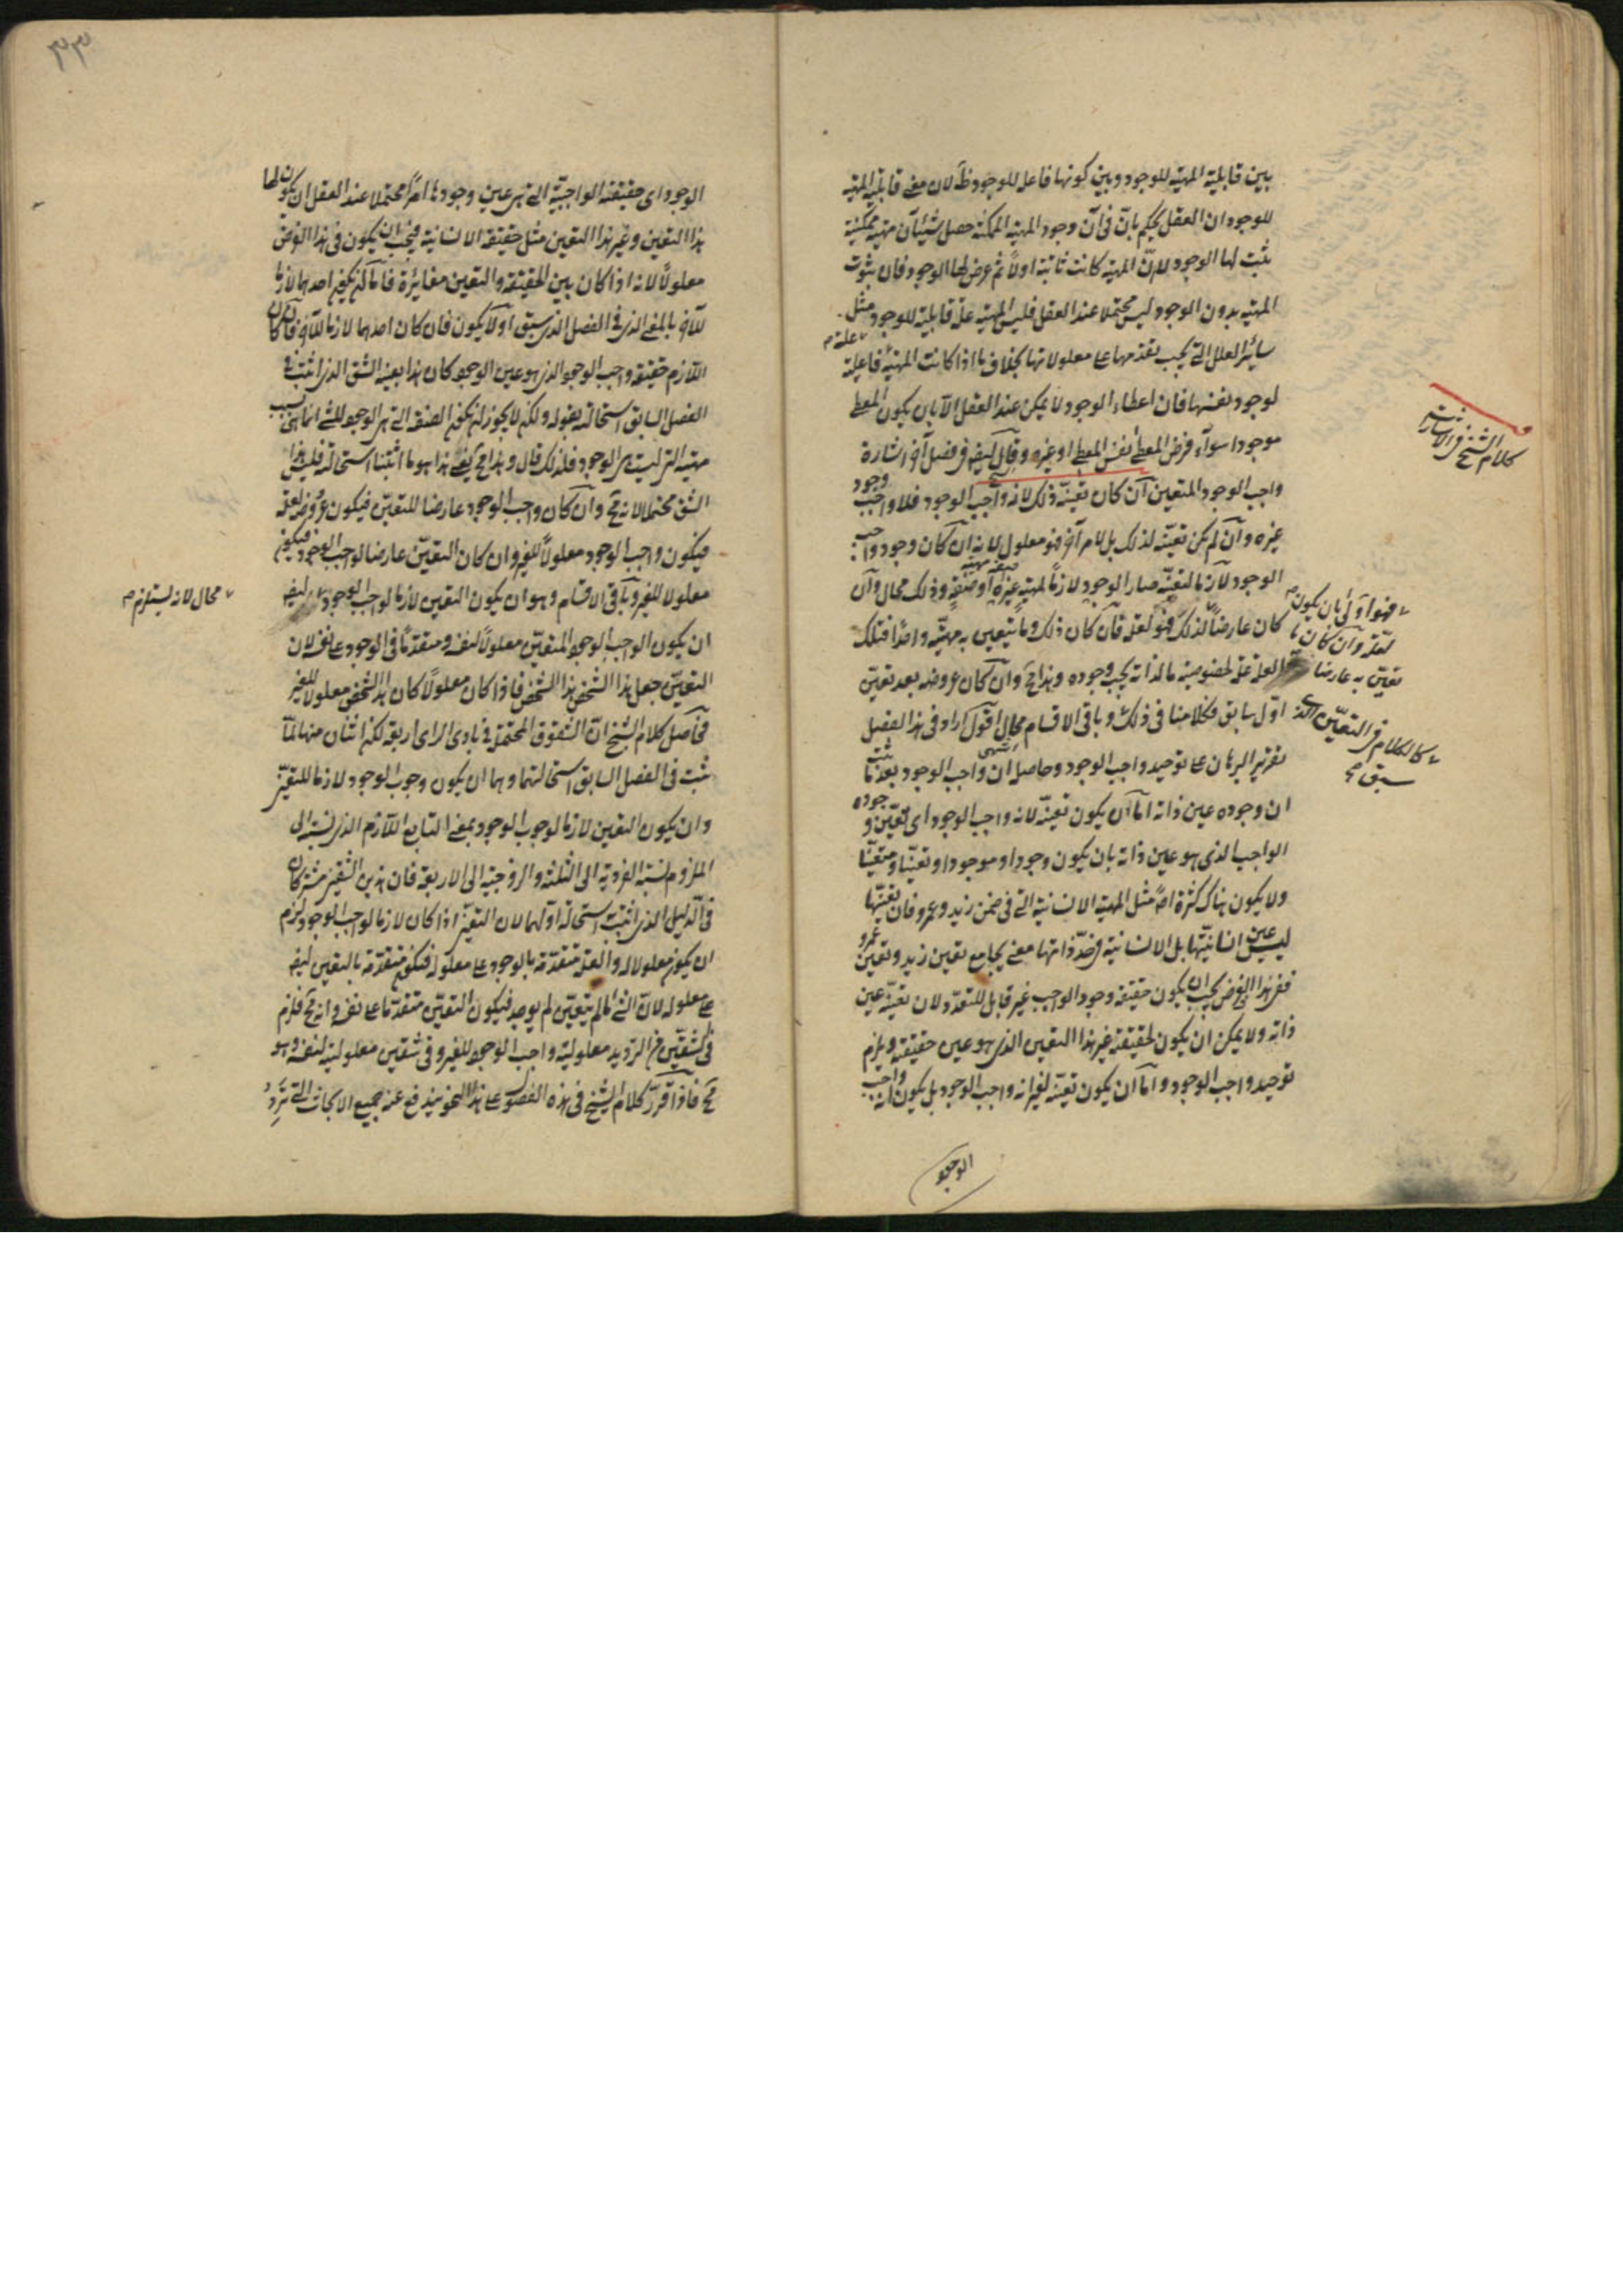 بين قابلية المهية للوجود وبين كونها فاعلا للوجود ظ لان معنى قابلية المهية
للوجود ان العقل يحكم بان فى آن وجود المهية الممكنة حصل شيئان مهية ممكنة
يثبت لها الوجود لا ان المهية كانت ثابتة اولا ثم عرض لها الوجود فان ثبوت
المهية بدون الوجود ليس محتملا عند العقل فليس المهية علة قابلية للوجود مثل
سائر العلل التى يجب تقدمها على معلولاتها بخلاف ما اذا كانت المهية فاعلية
علة م
لوجود نفسها فان اعطاء الوجود لا يمكن عند العقل الا بان يكون المعطى
موجودا سواء فرض المعطى نفس المعطى او غيره وقال الشيخ فى فصل آخر اشارة
كلام الشيخ فى الاشارات
واجب الوجود المتعين ان كان تعينه ذلك لانه واجب الوجود فلا واجب وجود
غيره وان لم يكن تعينه لذلك بل لامر آخر فهو معلول لانه ان كان وجود واجب
الوجود لازما لتعينه صار الوجود لازما لمهية غيره او صفة وذلك محال وان
كان عارضا لذلك فهو لعلة فان كان ذلك وما يتعين به مهيته واحدا فتلك
فهو اولى بان يكون
لعلة وان كان ما
تعين به عارضا
العلة علة لخصوصية ما لذاته يجب وجوده وهذا مح وان كان عروضه بعد تعين
اول سابق فكلامنا فى ذلك وباقى الاقسام محال اقول اراد فى هذا الفصل
كالكلام فى التعين الذى
سبق صح
تقرير البرهان على توحيد واجب الوجود وحاصله ان واجب الوجود بعد ما ثبت
ان وجوده عين ذاته اما ان يكون تعينه لانه واجب الوجود اى تعين وجوده
الواجب الذى هو عين ذاته بان يكون وجودا وموجودا وتعينا ومتعينا
ولا يكون هناك كثرة اصلا مثل المهية الانسانية التى فى ضمن زيد وعمرو فان تعينها
ليس عين انسانيتها بل الانسانية فى حد ذاتها معنى يجامع تعين زيد وتعين عمرو
فعلى هذا الفرض يجب ان يكون حقيقة وجود الواجب غير قابل للتعدد لان تعينه عين
ذاته ولا يمكن ان يكون لحقيقته غير هذا التعين الذى هو عين حقيقته ويلزم
توحيد واجب الوجود واما ان يكون تعينه لغير انه واجب الوجود بل يكون واجب
الوجود
الوجود اى حقيقته الواجبية التى هى عين وجودها امرا محتملا عند العقل ان يكون لها
هذا التعين وغير هذا التعين مثل حقيقة الانسانية فيجب ان يكون فى هذا الفرض
معلولا لانه اذا كان بين الحقيقة والتعين مغائرة فاما ان يكون احدهما لازما
للآخر بالمعنى الذى فى الفصل الذى سبق اولا يكون فان كان احدهما لازما للآخر فان كان
اللازم حقيقة واجب الوجود الذى هو عين الوجود كان هذا بعينه الشق الذى اثبت فى
الفصل السابق استحالته بقوله ولكن لا يجوز ان يكون الصفة التى هى الوجود للشئ انما هى بسبب
مهيته التى ليست هى الوجود فلذلك قال وهذا مح يعنى هذا هو ما اثبتنا استحالته فليس هذا
الشق محتملا لانه مح وان كان واجب الوجود عارضا للتعين فيكون عروضه لعلة
فيكون واجب الوجود معلولا للغير وان كان التعين عارضا لواجب الوجود فيكون
معلولا للغير وباقى الاقسام وهو ان يكون التعين لازما لواجب الوجود ايضا
محال لانه يستلزم م
ان يكون الواجب الوجود المتعين معلولا لنفسه ومتقدما فى الوجود على نفسه لان
التعين جعل هذا الشخص هذا الشخص فاذا كان معلولا كان هذا الشخص معلولا للغير
فحاصل كلام الشيخ ان الشقوق المحتملة فى بادى الراى اربعة لكن اثنان منها لما
ثبت فى الفصل السابق استحالتهما وهما ان يكون وجوب الوجود لازما للتعين
وان يكون التعين لازما لوجوب الوجود بمعنى التابع اللازم الذى نسبته الى
الملزوم نسبة الفردية الى الثلثة والزوجية الى الاربعة فان هذين الشقين مشتركان
فى الدليل الذى اثبت استحالة اولهما لان التعين اذا كان لازما لواجب الوجود لزم
ان يكون معلولا له والعلة متقدمة بالوجود على معلوله فتكون متقدمة بالتعين ايضا
على معلوله لان الشئ ما لم يتعين لم يوجد فيكون التعين متقدما على نفسه وانه مح فلزم
فى شقين من الترديد معلولية واجب الوجود للغير وفى شقين معلوليته لنفسه وهو
مح فاذا تقرر كلام الشيخ فى هذه الفصول على هذا النحو يندفع عنه جميع الابحاث التى ترد